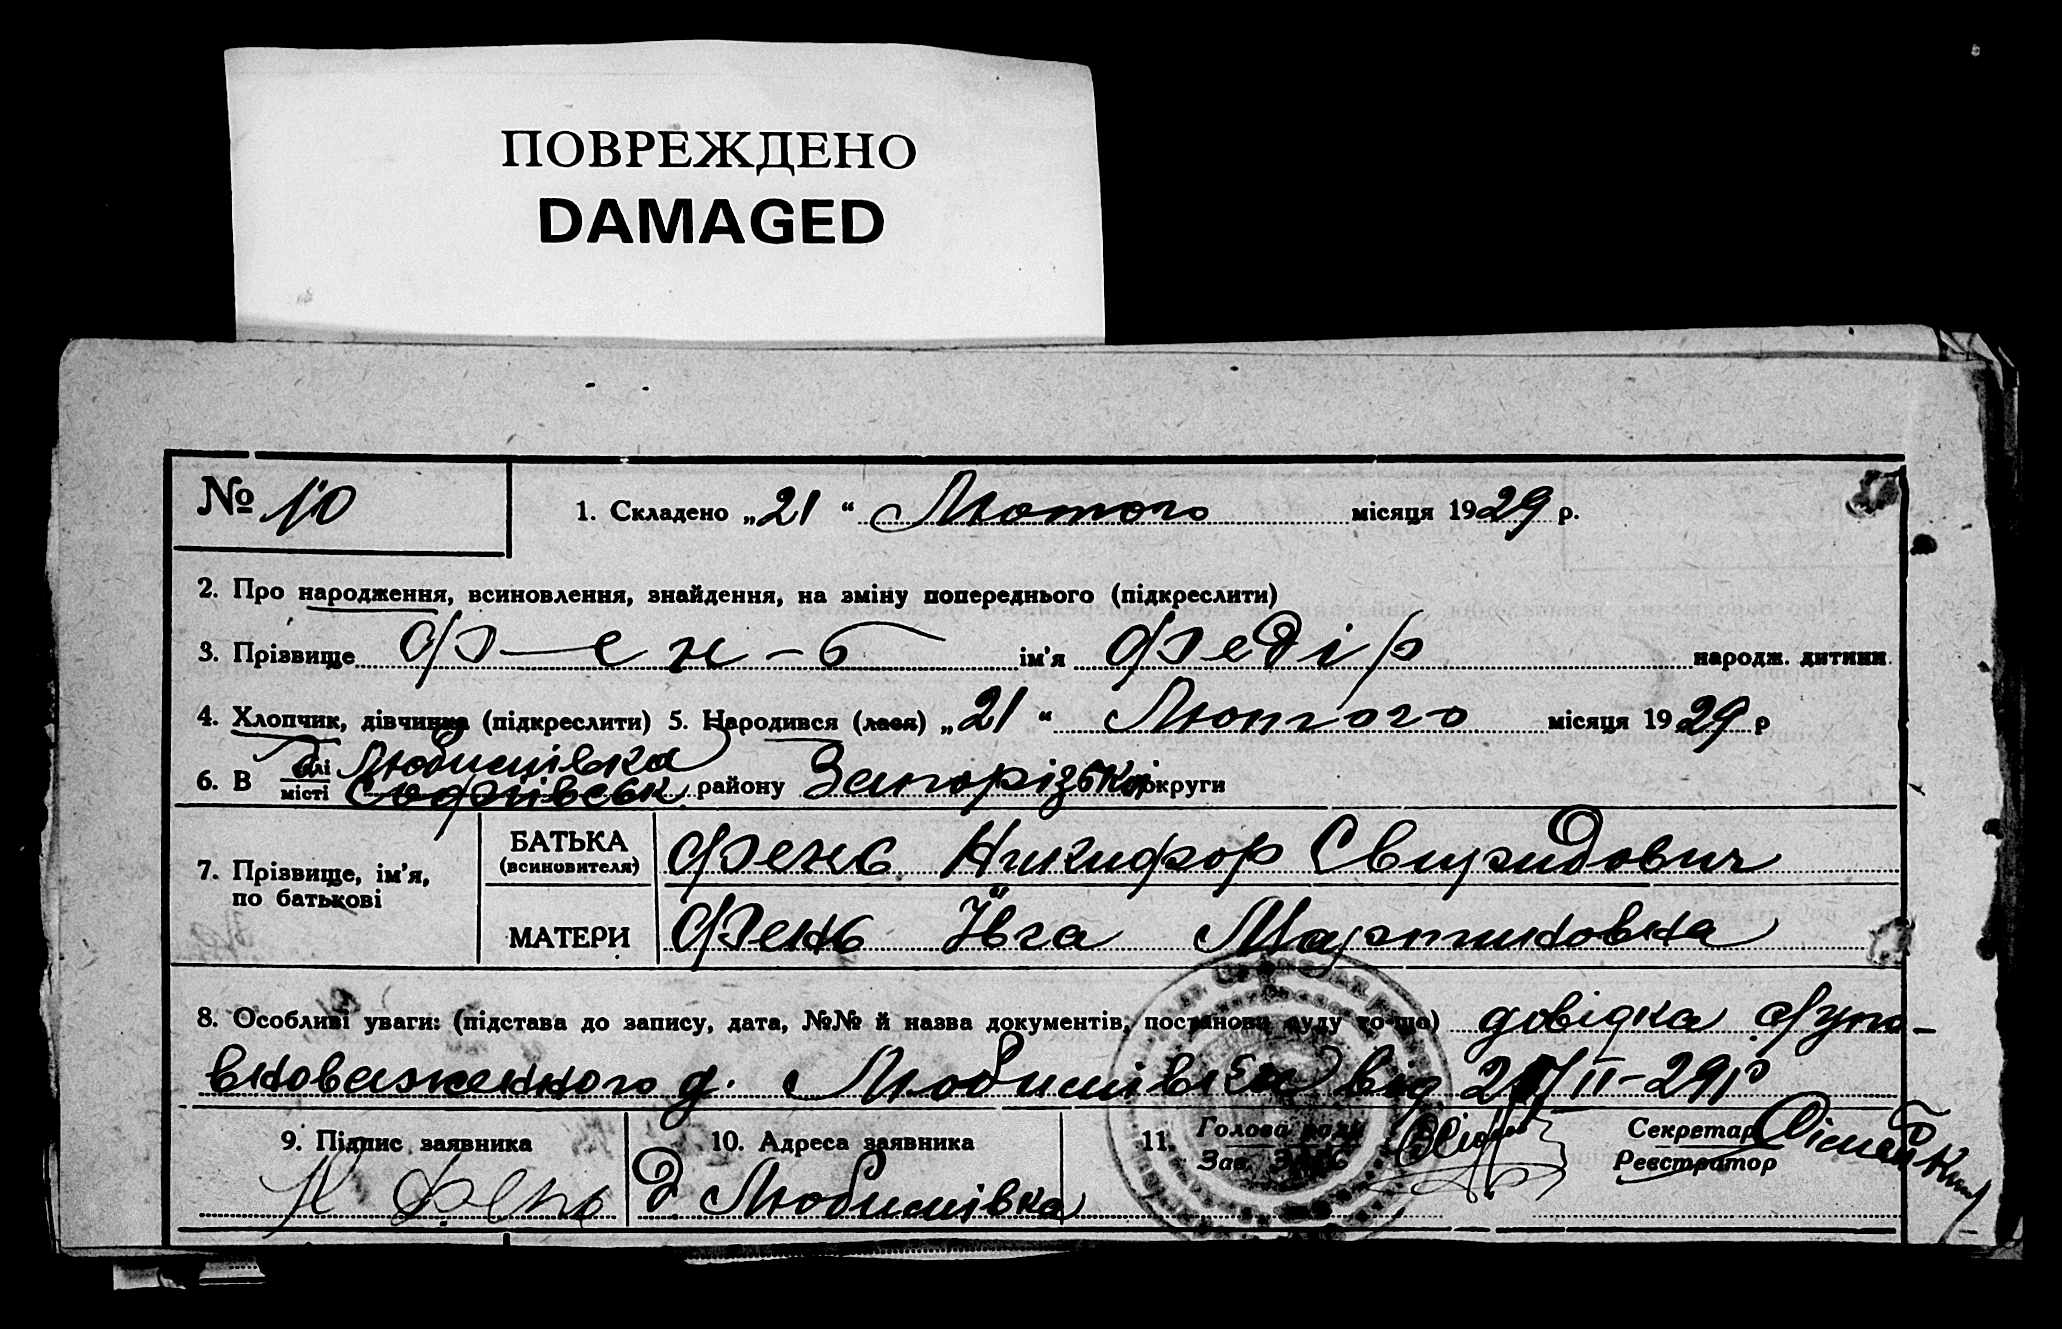 ПОВРЕЖДЕНО
DAMAGED
№ 10
1. Складено „21“ Лютого місяця 1929 р.
2. Про народження, всиновлення, знайдення, на зміну попереднього (підкреслити)
3. Прізвище Фень ім'я Федір народж. дитини
4. Хлопчик, дівчинка (підкреслити) 5. Народився (лася) „21“ Лютого місяця 1929 р
6. В селі Любимівка
місті Софіївськ району Запорізької округи
7. Прізвище, ім'я, по батькові
БАТЬКА (всиновителя) Фень Никифор Свиридович
МАТЕРИ Фень Ївга Мартиновна
8. Особливі уваги: (підстава до запису, дата, №№ й назва документів, постанови суду то-що) довідка упо-
вноваженного д. Любимівки від II-29 р
9. Підпис заявника
Н Фень
10. Адреса заявника
д Любимівка
11. Голова ради
Зав. ЗАГС
Секретар
Реєстратор